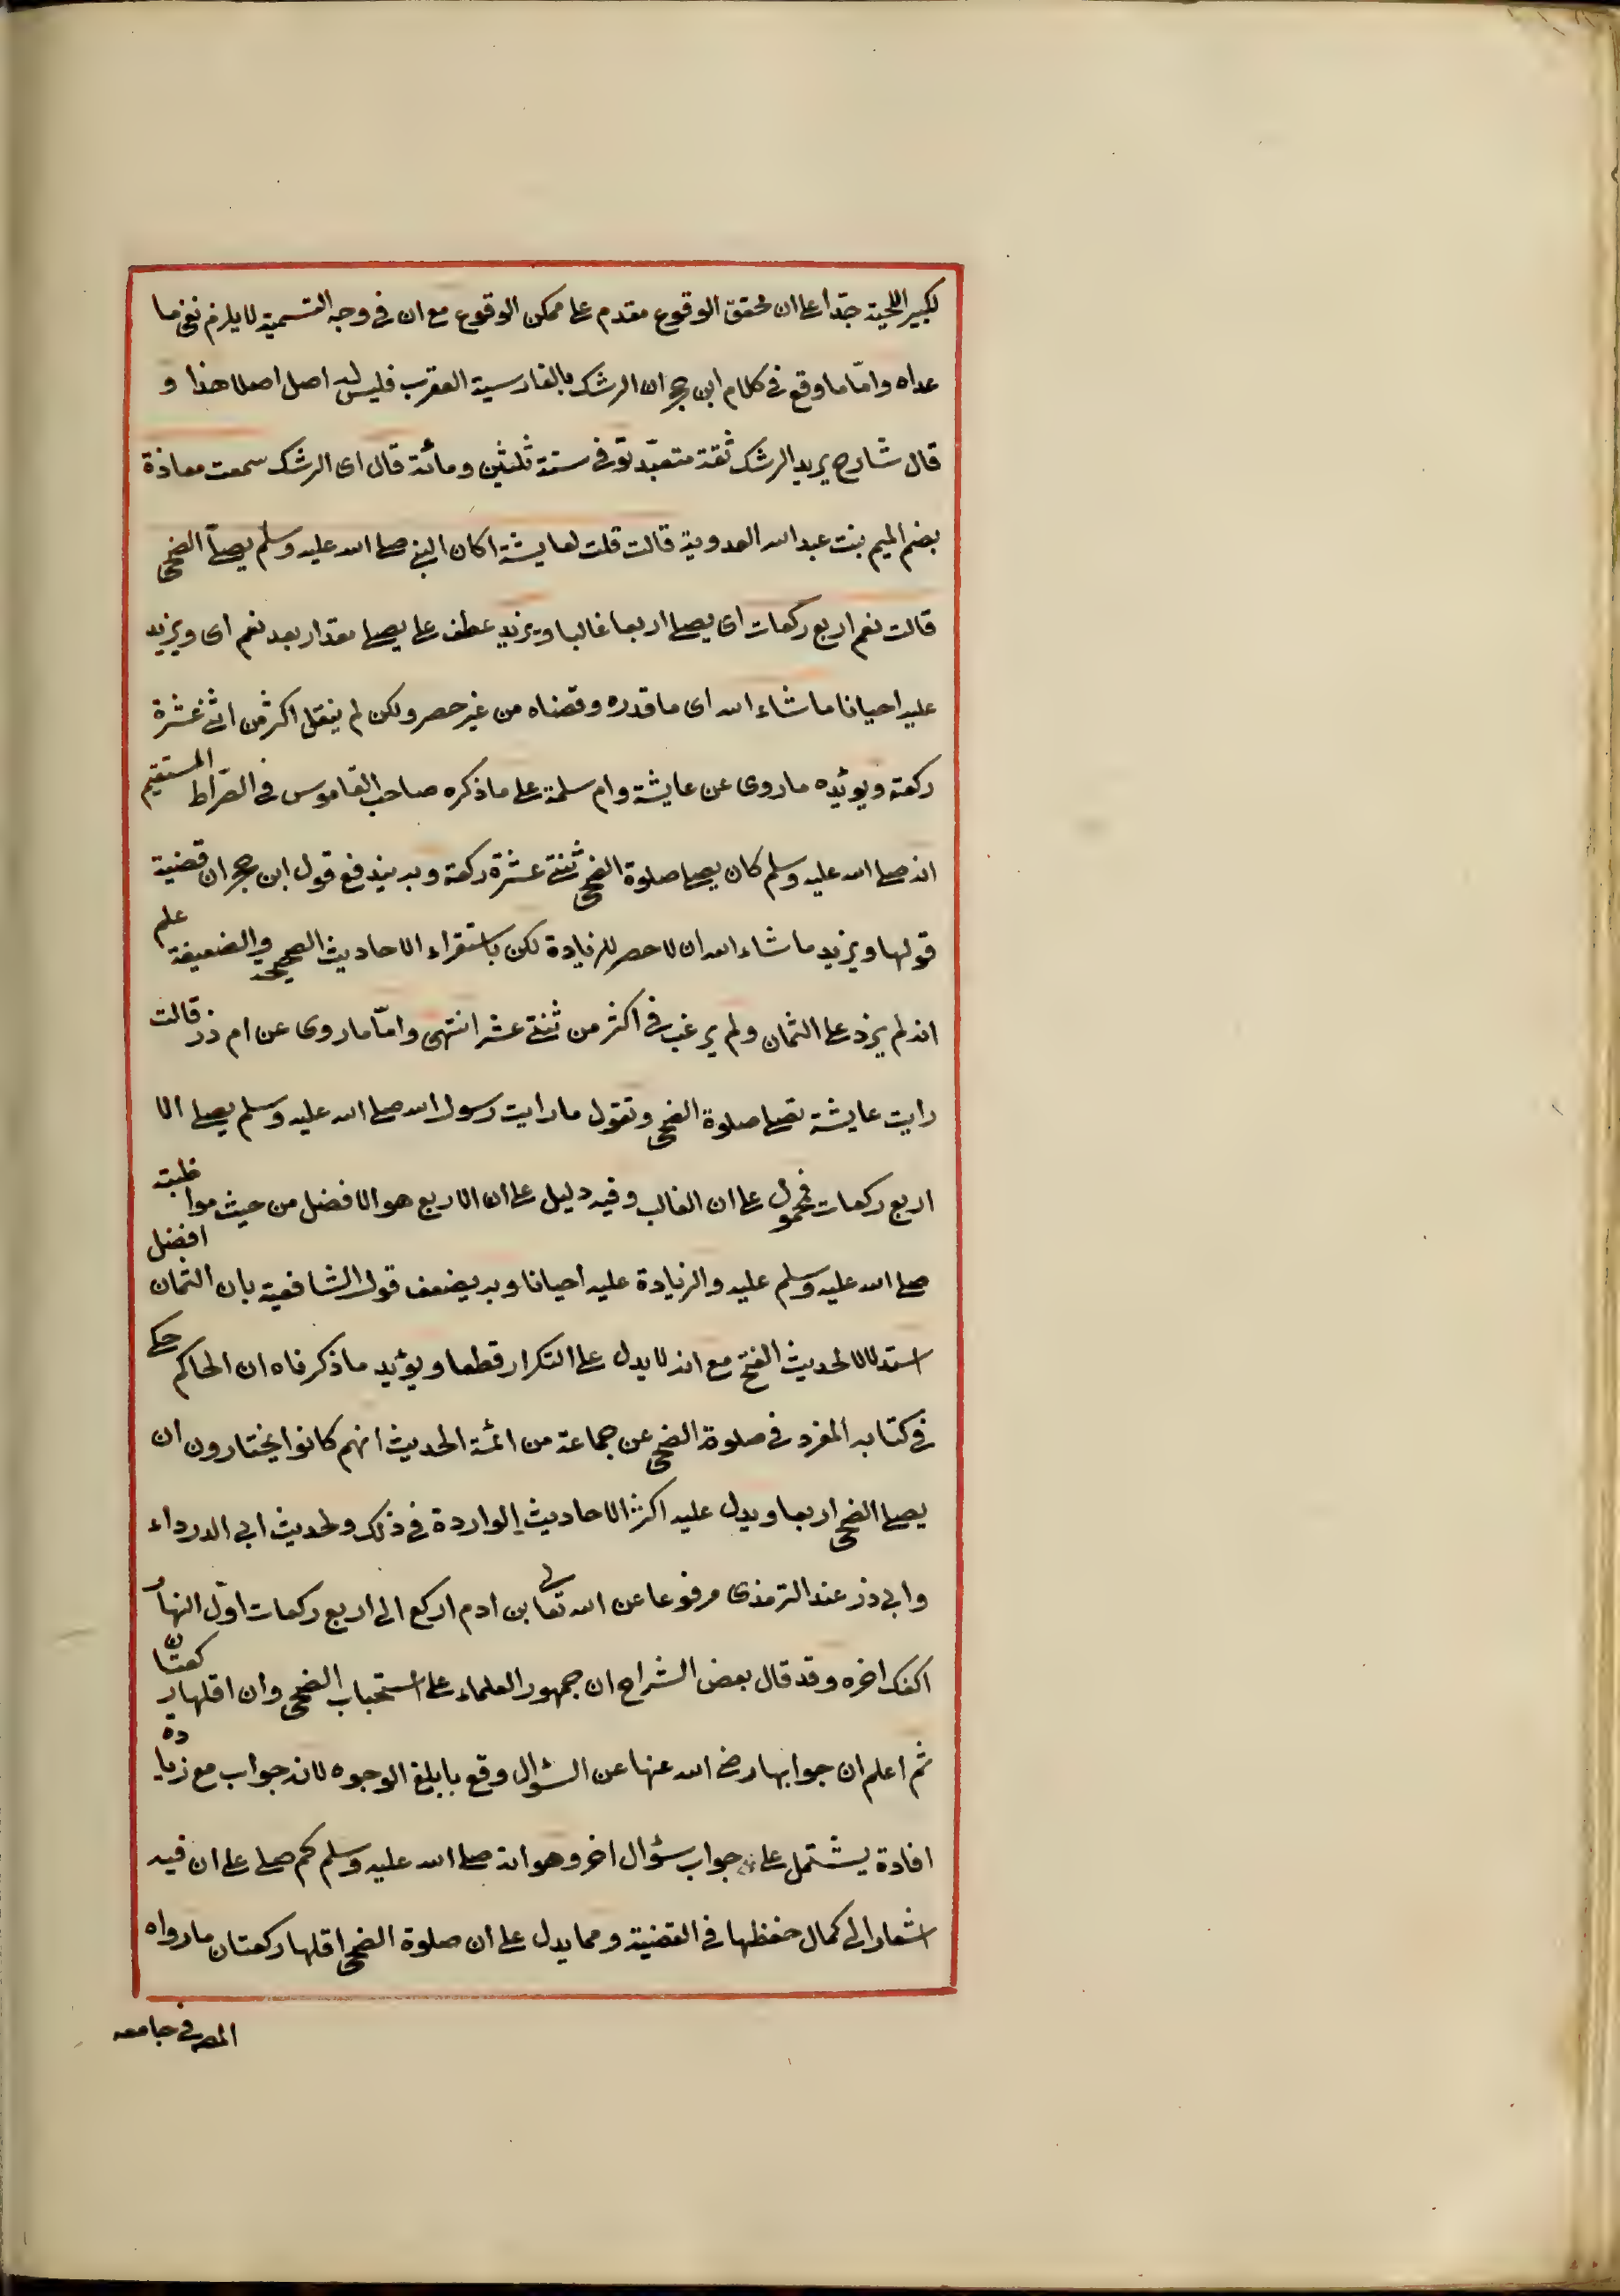 لكبير اللحية جدّا على ان محقق الوقوع مقدم على ممكن الوقوع مع ان في وجه التسمية لا يلزم نفى ما
عداه وامّا ما وقع في كلام ابن حجر ان الرشك بالفارسية العقرب فليس له اصل اصلا هذا و
قال شارح يريد الرشك ثقة متعبّد توفى سنة ثلثين ومائة قال اى الرشك سمعت معاذة
بضم الميم بنت عبد الله العدوية قالت قلت لعايشة اكان النبي صلى الله عليه وسلم يصلى الضحى
قالت نعم اربع ركعات اى يصلى اربعا غالبا ويزيد عطف على يصلى مقدار بعد نعم اى ويزيد
عليه احيانا ما شاء الله اى ما قدره وقضاه من غير حصر ولكن لم ينقل اكثر من اثنى عشرة
ركعة ويؤيده ما روى عن عايشة وام سلمة على ما ذكره صاحب القاموس في الصّراط المستقيم
انه صلى الله عليه وسلم كان يصلى صلوة الضحى ثنتى عشرة ركعة وبه يندفع قول ابن حجر ان قضية
قولها ويزيد ما شاء الله ان لا حصر للزيادة لكن باستقراء الاحاديث الصحيحة والضعيفة علم
انه لم يزد على الثمان ولم يرغب في اكثر من ثنتى عشر انتهى وامّا ما روى عن ام ذر قالت
رايت عايشة تصلى صلوة الضحى وتقول ما رايت رسول الله صلى الله عليه وسلم يصلى الا
اربع ركعات فمحمول على ان الغالب وفيه دليل على ان الاربع هو الافضل من حيث مواظبته
صلى الله عليه وسلم عليه والزيادة عليه احيانا وبه يضعف قول الشافعية بان الثمان افضل
استدلالا لحديث الفتح مع انه لا يدل على التكرار قطعا ويؤيد ما ذكرناه ان الحاكم حكى
في كتابه المفرد في صلوة الضحى عن جماعة من ائمة الحديث انهم كانوا يختارون ان
يصلى الضحى اربعا ويدل عليه اكثر الاحاديث الواردة في ذلك ولحديث ابى الدرداء
وابى ذر عند الترمذى مرفوعا عن الله تعالى بن ادم اركع الى اربع ركعات اوّل النهار
اكفك اخره وقد قال بعض الشراح ان جمهور العلماء على استحباب الضحى وان اقلها ركعتان
ثم اعلم ان جوابها رضى الله عنها عن السؤال وقع بابلغ الوجوه لانه جواب مع زيادة
افادة يشتمل على جواب سؤال اخر وهو انه صلى الله عليه وسلم كم صلى على ان فيه
اشعارا الى كمال حفظها في القضية ومما يدل على ان صلوة الضحى اقلها ركعتان ما رواه
المص في جامعه